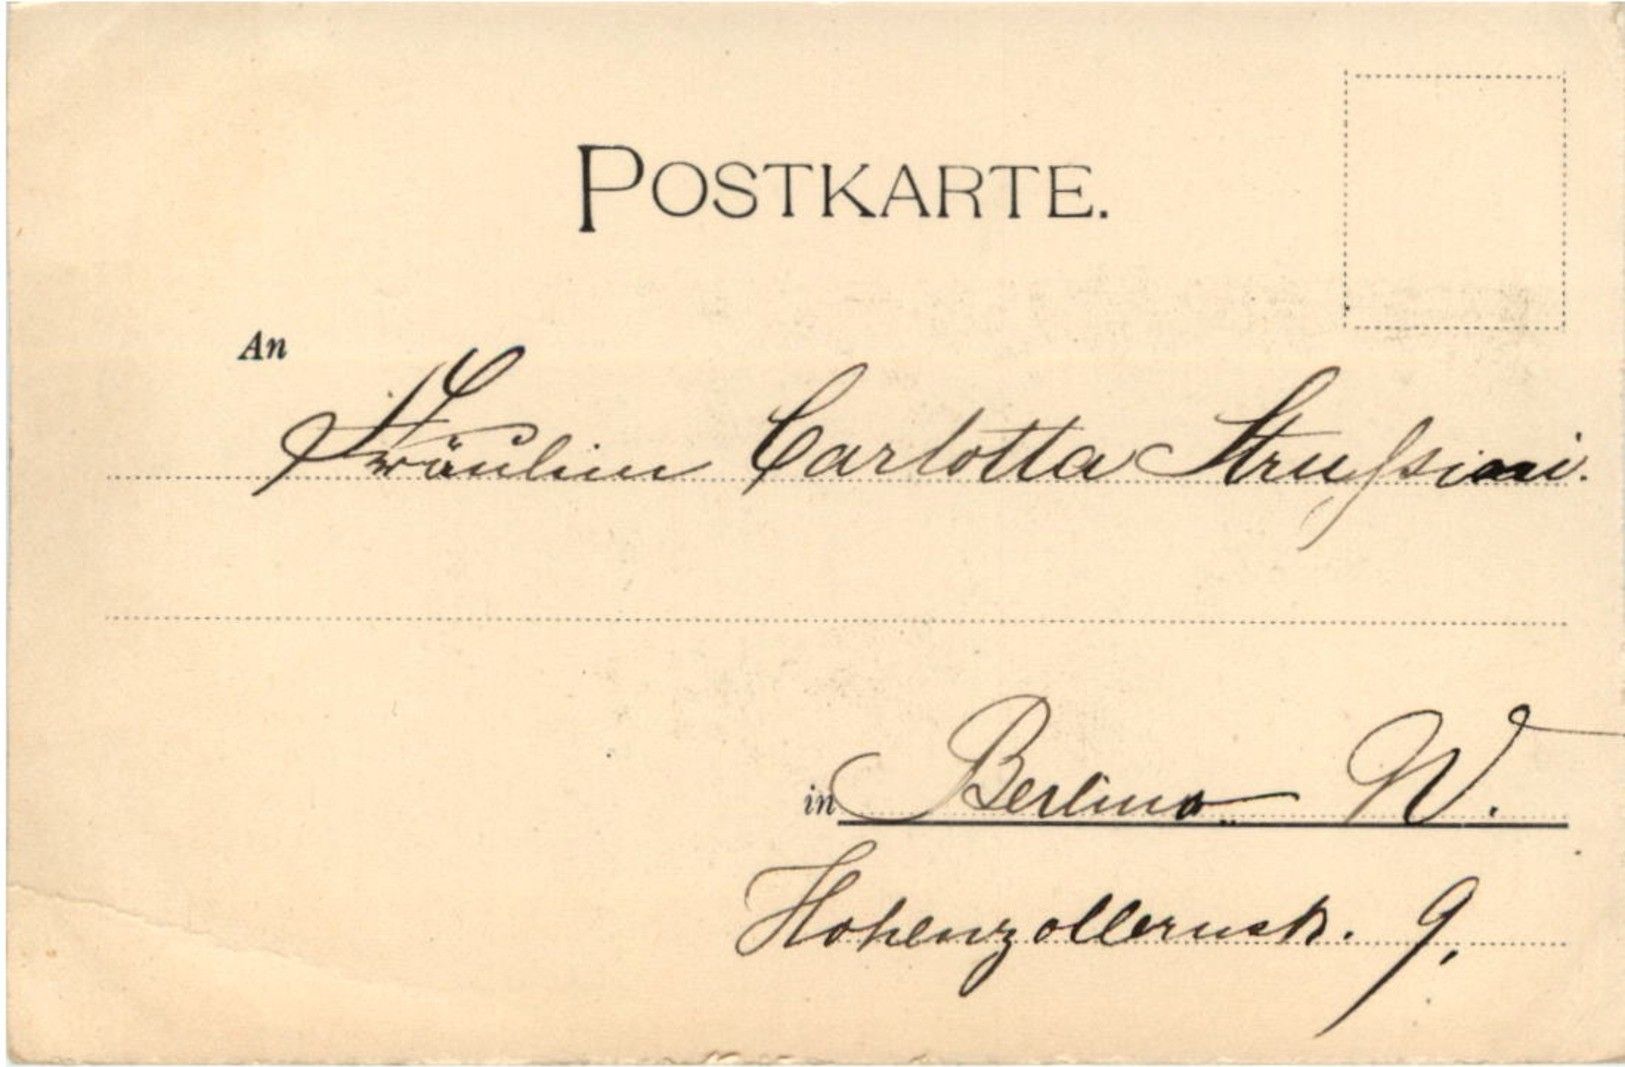 POSTKARTE.
An
Fräulein Carlotta
in Berlin W.
Hohenzollernstr. 9.